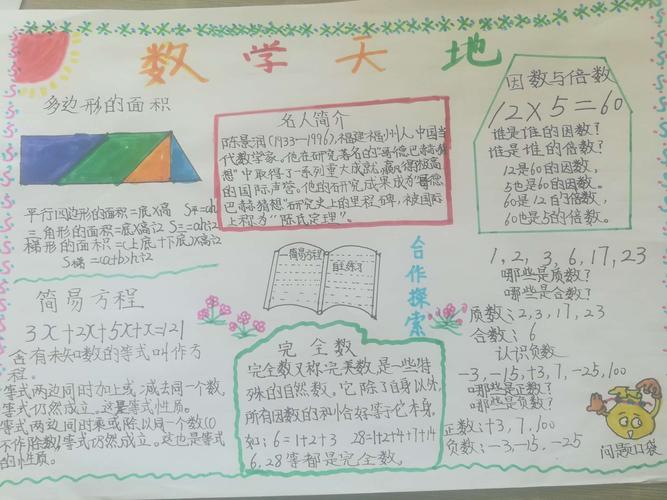 数学天地
多边形的面积
平行四边形的面积=底X高 S平=ah
三角形的面积=底X高÷2 S三=ah÷2
梯形的面积=(上底+下底)X高÷2
S梯=(a+b)h÷2
简易方程
3x+2x+5x+x=121
含有未知数的等式叫作方
程。
等式两边同时加上或减去同一个数,
等式仍然成立。这是等式性质。
等式两边同时乘或除以同一个数(0
不作除数)等式仍然成立。这也是等式
的性质。
名人简介
陈景润(1933—1996),福建福州人,中国当
代数学家。他在研究著名的"哥德巴赫猜
想"中取得了一系列重大成就,赢得极高
的国际声誉。他的研究成果成为"哥德
巴赫猜想"研究史上的里程碑,被国际
上称为"陈氏定理"。
简易方程
自主练习
合作探索
完全数
完全数又称完美数,是一些特
殊的自然数。它除了自身以外
所有因数的和恰好等于它本身,
如:6=1+2+3 28=1+2+4+7+14
6,28等都是完全数。
因数与倍数
12×5=60
谁是谁的因数?
谁是谁的倍数?
12是60的因数,
5也是60的因数。
60是12的倍数,
60也是5的倍数。
1,2,3,6,17,23
哪些是质数?
哪些是合数?
质数:2,3,17,23
合数:6
认识负数
-3,-15,+3,7,-25,100
哪些是正数?
哪些是负数?
正数:+3,7,100
负数:-3,-15,-25
问题口袋